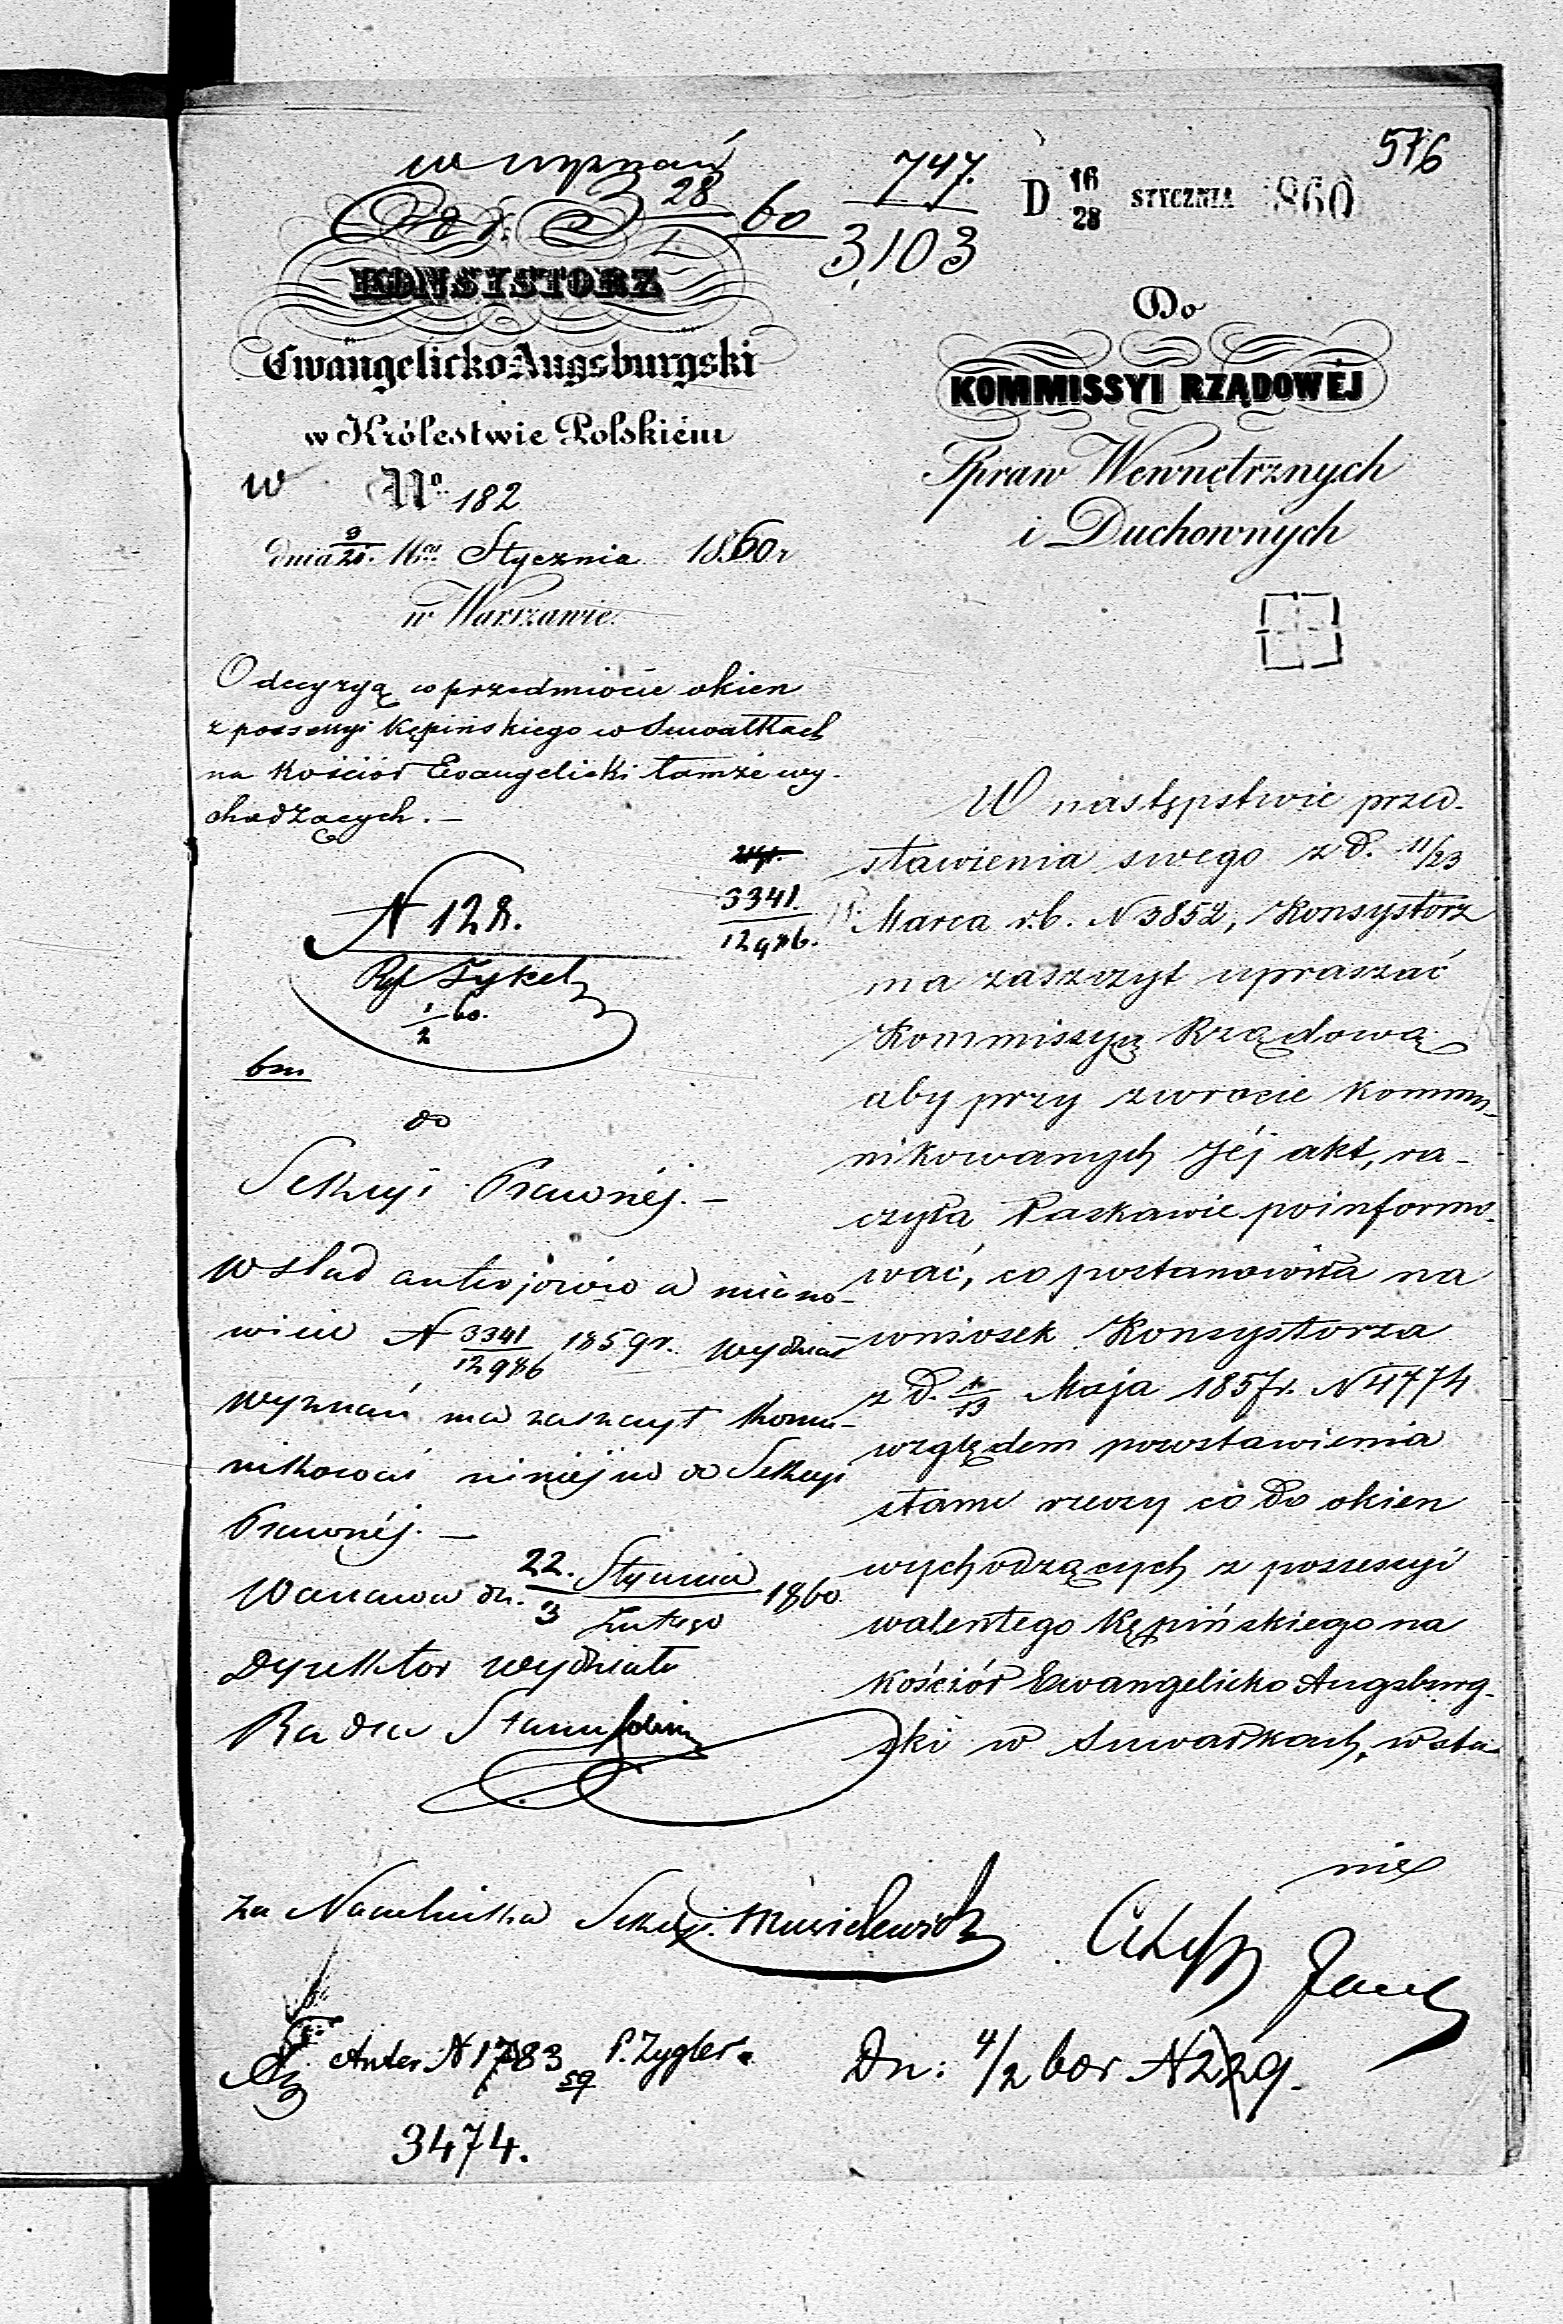 576
w wyznań
28
I 60
747.
3,103
D 16/28 STYCZNIA 1860
KONSYSTORZ
Ewangelicko-Augsburgski
w Królestwie Polskiém
w No 182
dnia 9/21. Stycznia 1860 r
w Warszawie.
O decyzyą w przedmiocie okien
z possessyi Kępińskiego w Suwałkach
na Kościół Ewangelicki tamże wy-
chodzących. —
N 128.
3341.
12986.
1/2 60.
do
Sekcyi Prawnéj. —
W ślad anteryorów a miano-
wicie N 3341/12986 1859 r. Wydział
Wyznań ma zaszczyt komu-
nikować niniejsze do Sekcyi
Prawnéj. —
Warszawa dn. 22. Stycznia/3 Lutego 1860
Dyrektor Wydziału
Radca Stanu
za Naczelnika Sekcyi.
Antes N 1783/59 P. Zygler.
3474.
Do
KOMMISSYI RZĄDOWÉJ
Spraw Wewnętrznych
i Duchownych
W następstwie przed-
stawienia swego z d. 11/23
Marca r.b. N 3852, Konsystorz
ma zaszczyt upraszać
Kommissyą Rządową
aby przy zwrocie kommu-
nikowanych Jéj akt, ra-
czyła łaskawie poinformo-
wać, co postanowiła na
wniosek Konsystorza
z d. 1/13 Maja 1857 r. N 4774
względem pozostawienia
stanu rzeczy co do okien
wychodzących z possessyi
Walentego Kępińskiego na
kościół Ewangelicko Augsburg-
ski w Suwałkach, w sta-
nie
Dn: 4/2 60r N 229.